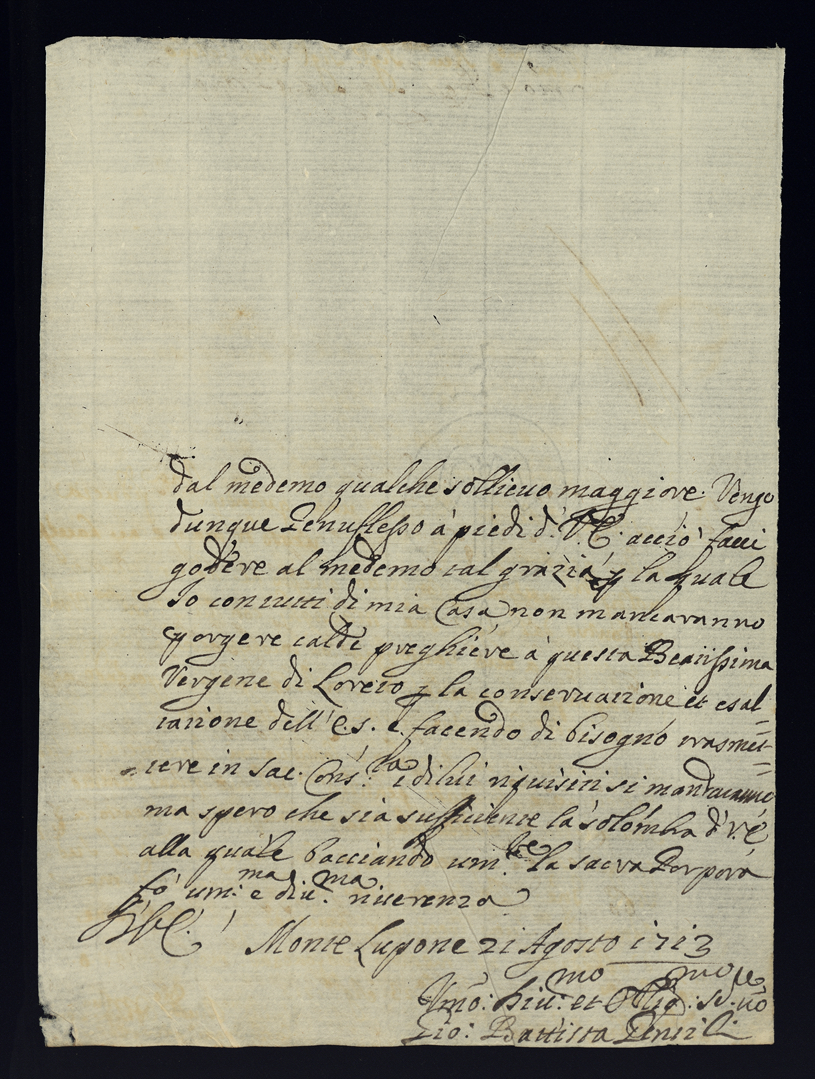 dal medemo qualche sollieuo maggiore. Vengo
dunque genuflesso à piedi d. V.E. acciò facci
godere al medemo tal grazia p la quale
Io con tutti di mia Casa non mancaranno
porgere calde preghiere à questa Beatissima
Vergene di Loreto p la conseruatione et esal=
tatione dell' E.S. e facendo di bisogno trasmet=
tere in Sac. Cons.ta i di lui riquisiti si mandaranno
ma spero che sia sufficiente la sol'ombra d' V.E
alla quale bacciando um.te la sacra Porpora
fò um.ma e diu.ma riuerenza
D.V.E.
Monte Lupone 21 Agosto 1713
Vmo: Diu.mo et Oblig.mo Se.re uō
Gio: Battista